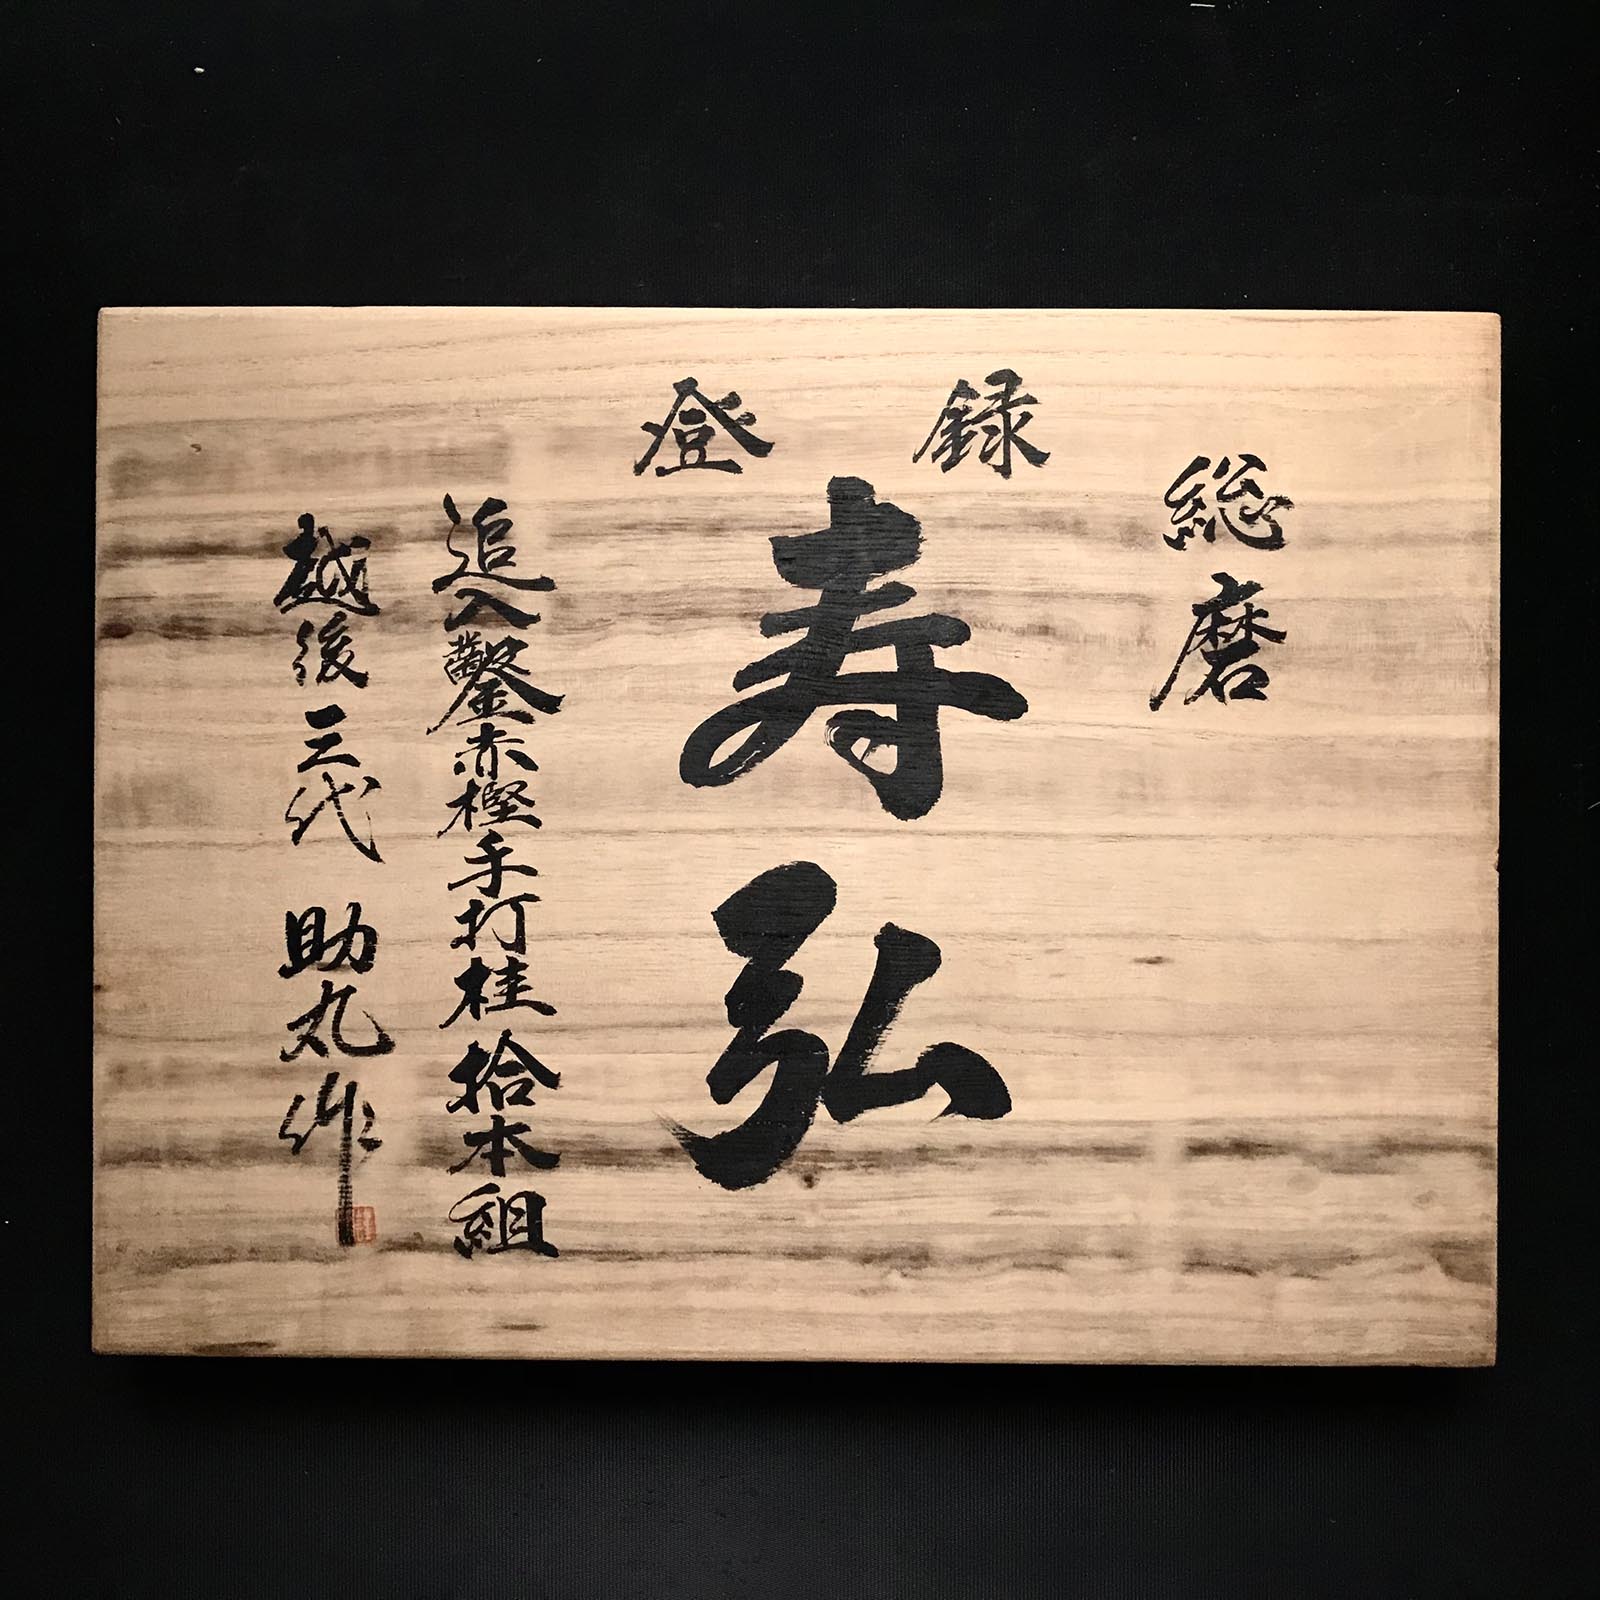 総磨
登録
寿弘
追入鑿赤樫手打桂拾本組
越後三代 助丸作